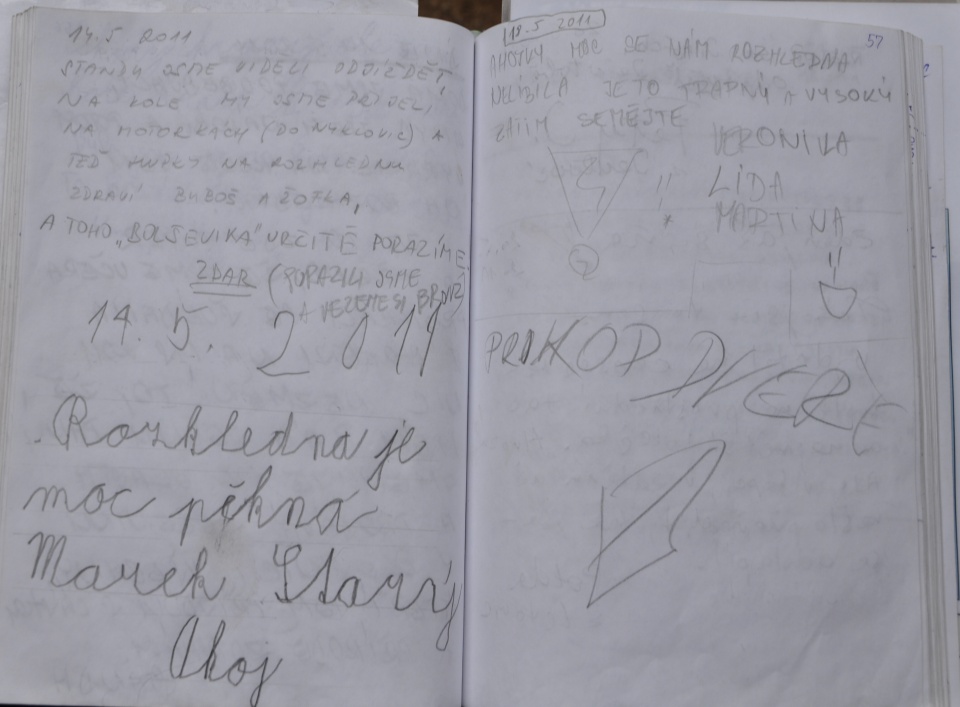 14.5 2011
STANDU JSME VIDĚLI ODJÍŽDĚT,
NA KOLE MY JSME PŘIJELI,
NA MOTORKÁCH (DO NYKLOVIC) A
TEĎ NA ROZHLEDNU
ZDRAVÍ BUBOŠ A ŽOFKA,
A TOHO „BOLŠEVIKA" URČITĚ PORAZÍME
ZDAR (PORAZILI JSME
A VEZEME SI BRONZ)
14. 5. 2011
Rozhledna je
moc pěkná
Marek Starý
Ahoj
57
18.5 2011
AHOJKY MOC SE NÁM ROZHLEDNA
NELÍBILA JE TO TRAPNÝ A VYSOKÝ
ZATÍM SEMĚJTE
VERONIKA
LÍDA
MARTINA
PROKOP DVEŘE